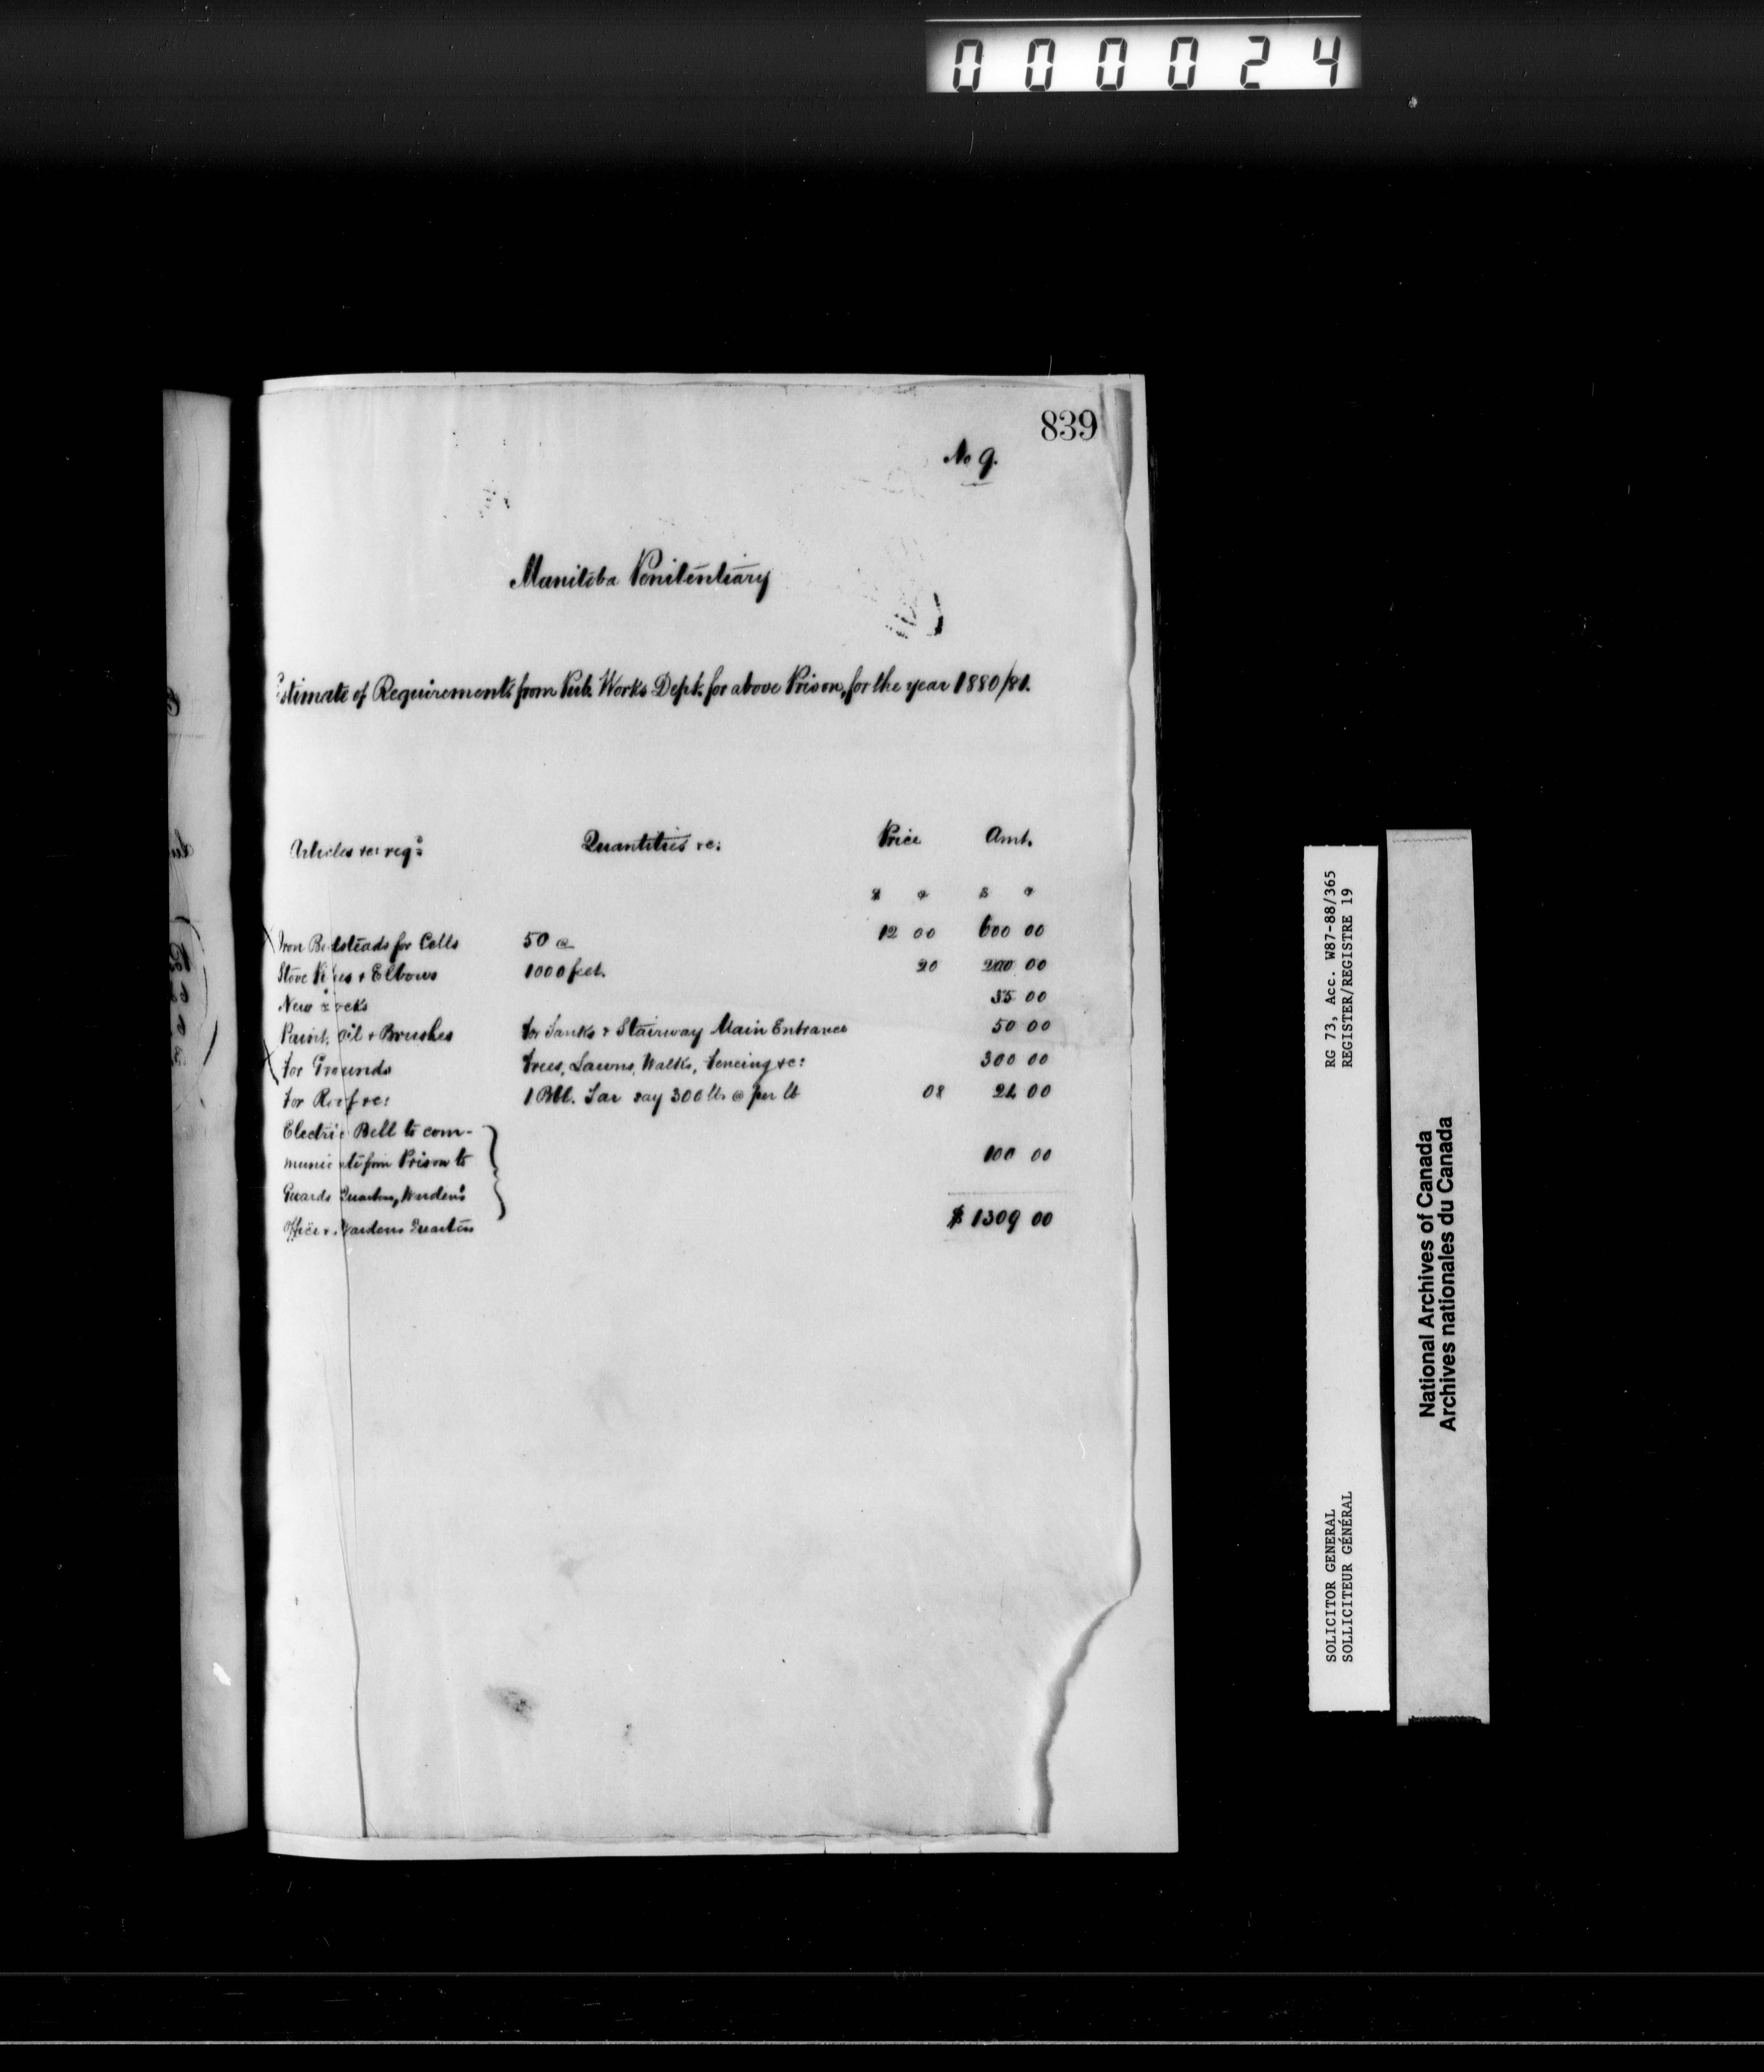 000024
839
No 9.
Manitoba Penitentiary
Estimate of Requirements from Pub. Works Dept. for above Prison, for the year 1880/81.
Articles &c: reqd Quantities &c: Price Amt.
$ c $ c
Iron Bedsteads for Cells 50 @ 12 00 600 00
Stove Pipes & Elbows 1000 feet. 20 200 00
New Locks 35 00
Paint, Oil & Brushes for Tanks & Stairway Main Entrance 50 00
For Grounds Trees, Lawns, Walks, Fencing &c: 300 00
For Roof &c: 1 Bbl. Tar say 300 lbs @ per lb 08 24 00
Electric Bell to com-
municate from Prison to 100 00
Guards Quarters, Wardens
Office & Wardens Quarters $ 1309 00
RG 73, Acc. W87-88/365
REGISTER/REGISTRE 19
SOLICITOR GENERAL
SOLLICITEUR GÉNÉRAL
National Archives of Canada
Archives nationales du Canada